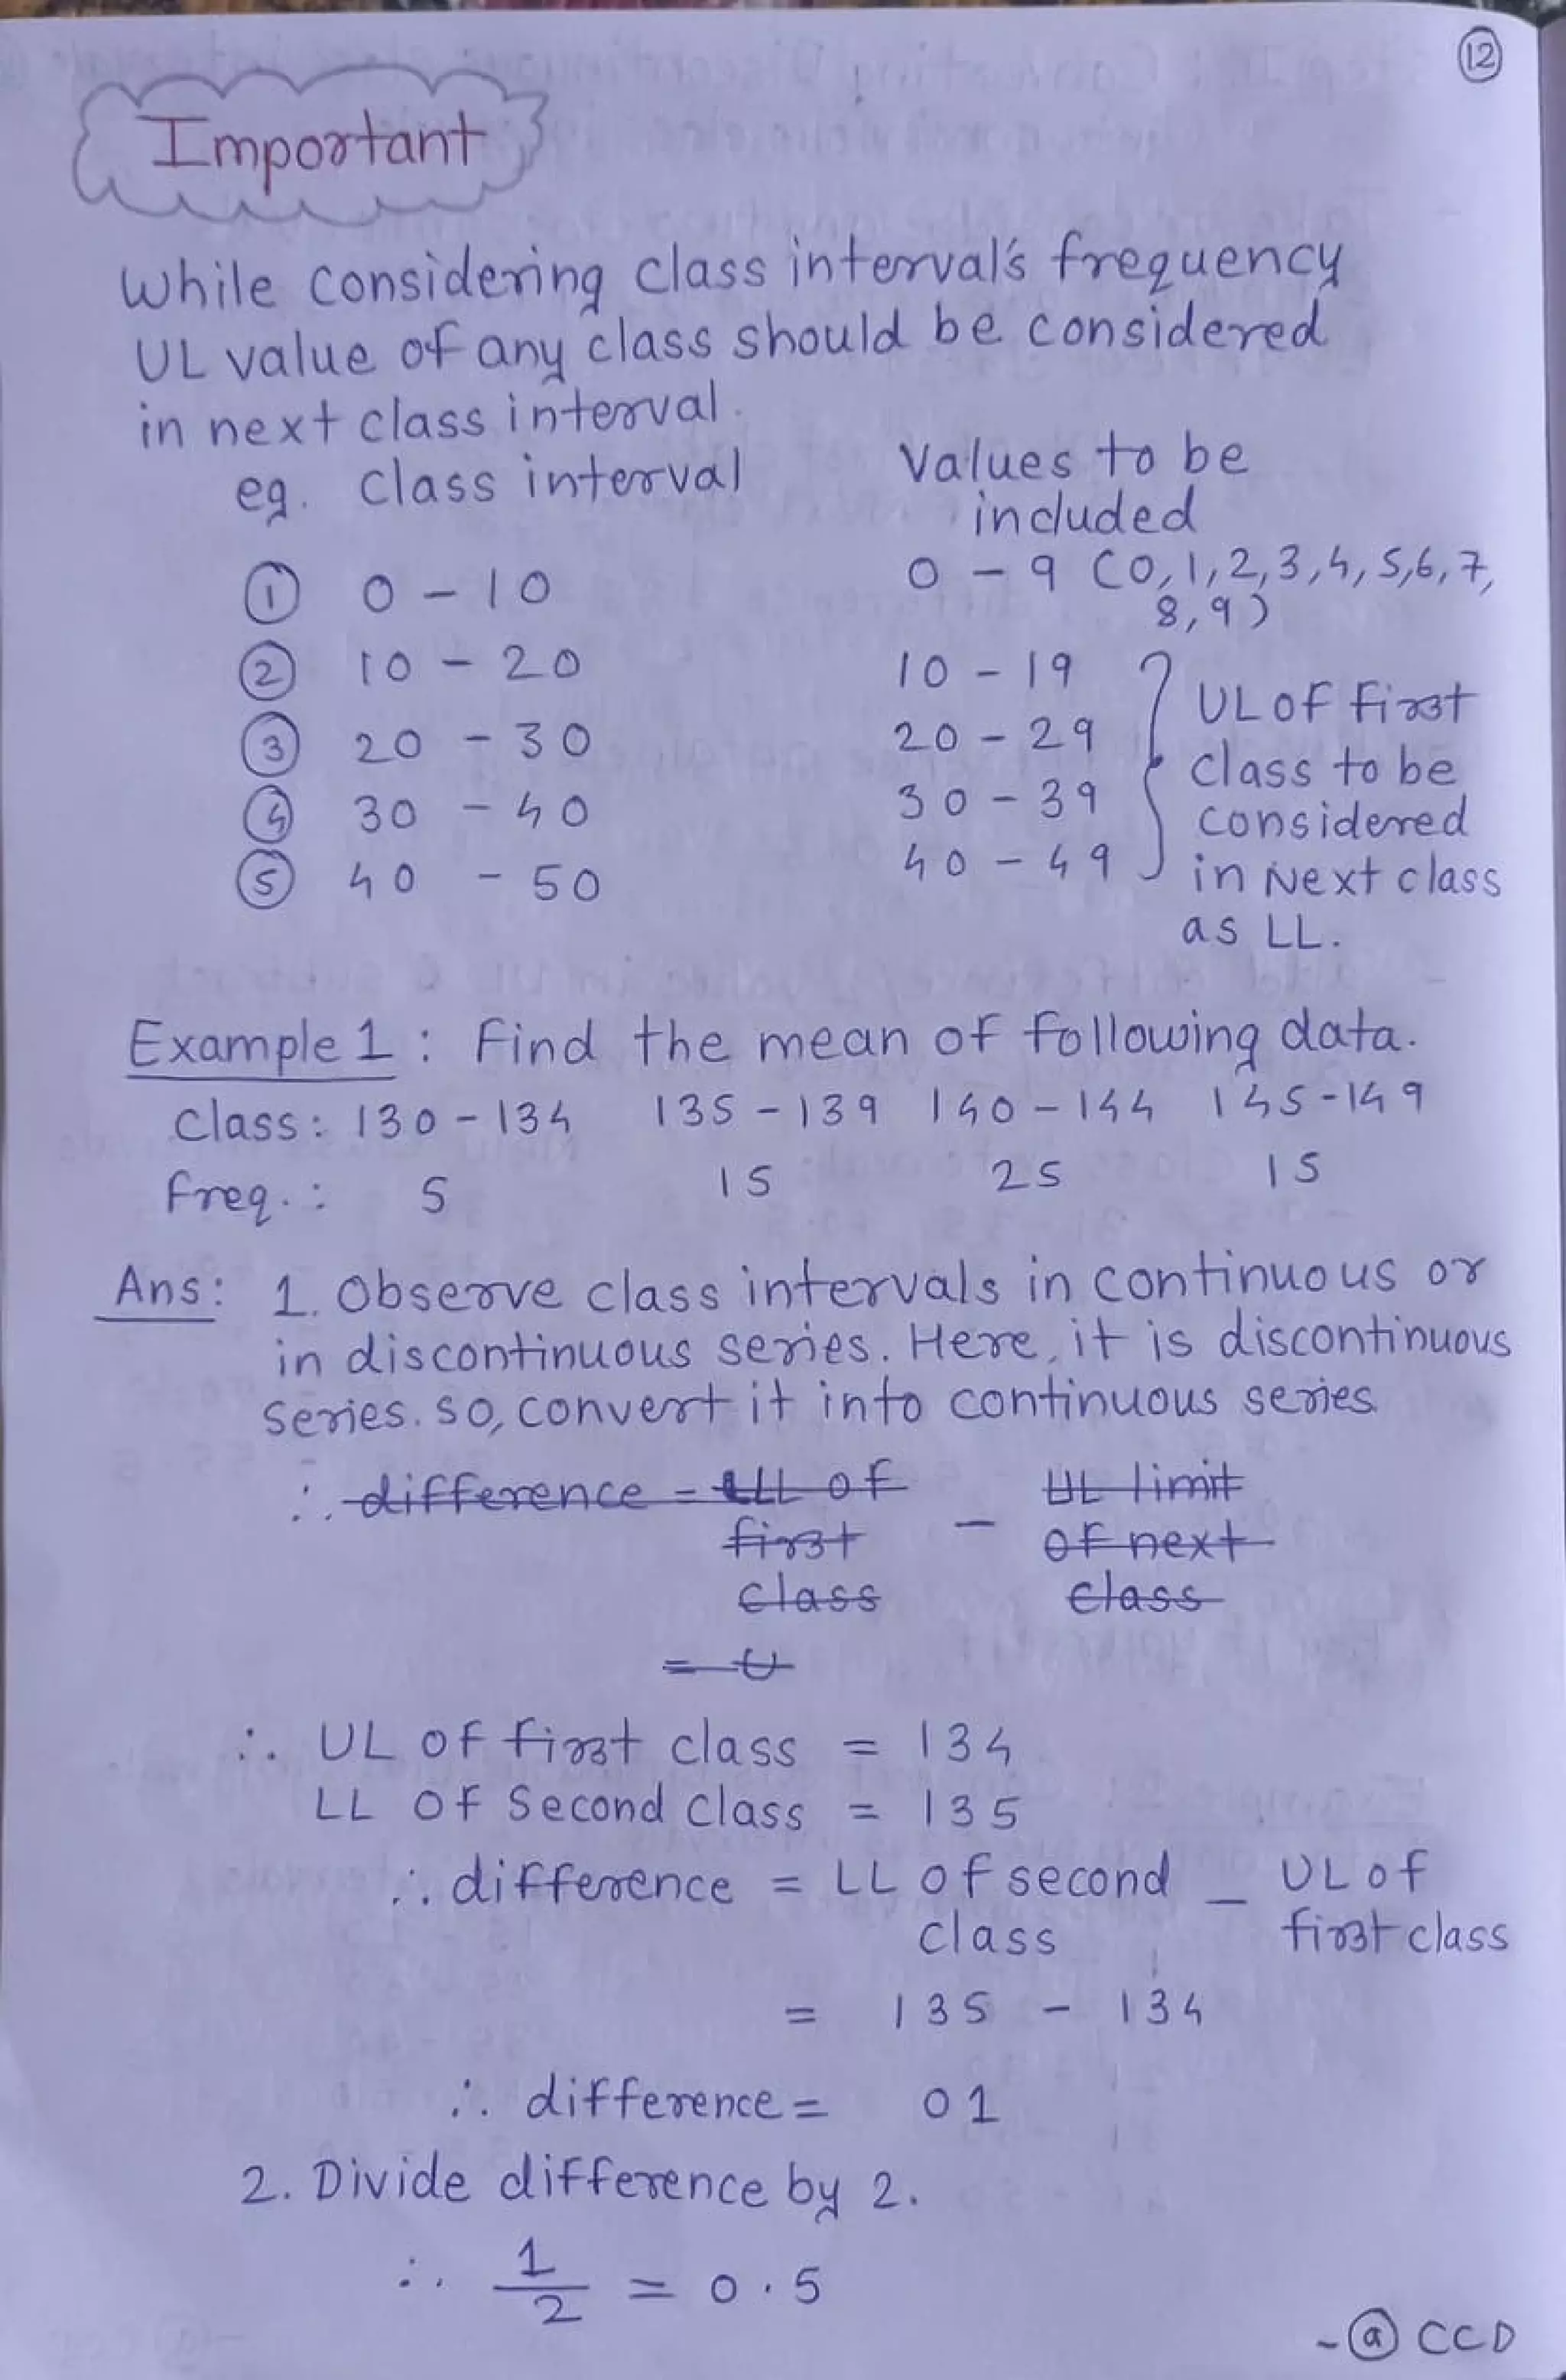 12
Important
While considering class interval's frequency
UL value of any class should be considered
in next class interval.
eg. Class interval Values to be
included
1 0 - 10 0 - 9 (0,1,2,3,4,5,6,7,
8,9)
2 10 - 20 10 - 19
3 20 - 30 20 - 29
4 30 - 40 30 - 39
5 40 - 50 40 - 49
UL of first
class to be
considered
in Next class
as LL.
Example 1 : Find the mean of following data.
Class : 130 - 134 135 - 139 140 - 144 145 - 149
Freq. : 5 15 25 15
Ans: 1. Observe class intervals in continuous or
in discontinuous series. Here, it is discontinuous
series. so, convert it into continuous series
∴ difference = LL of UL limit
first - of next
class class
= U
∴ UL of first class = 134
LL of Second class = 135
∴ difference = LL of second - UL of
class first class
= 135 - 134
∴ difference = 01
2. Divide difference by 2.
∴ 1/2 = 0.5
-@ CCD